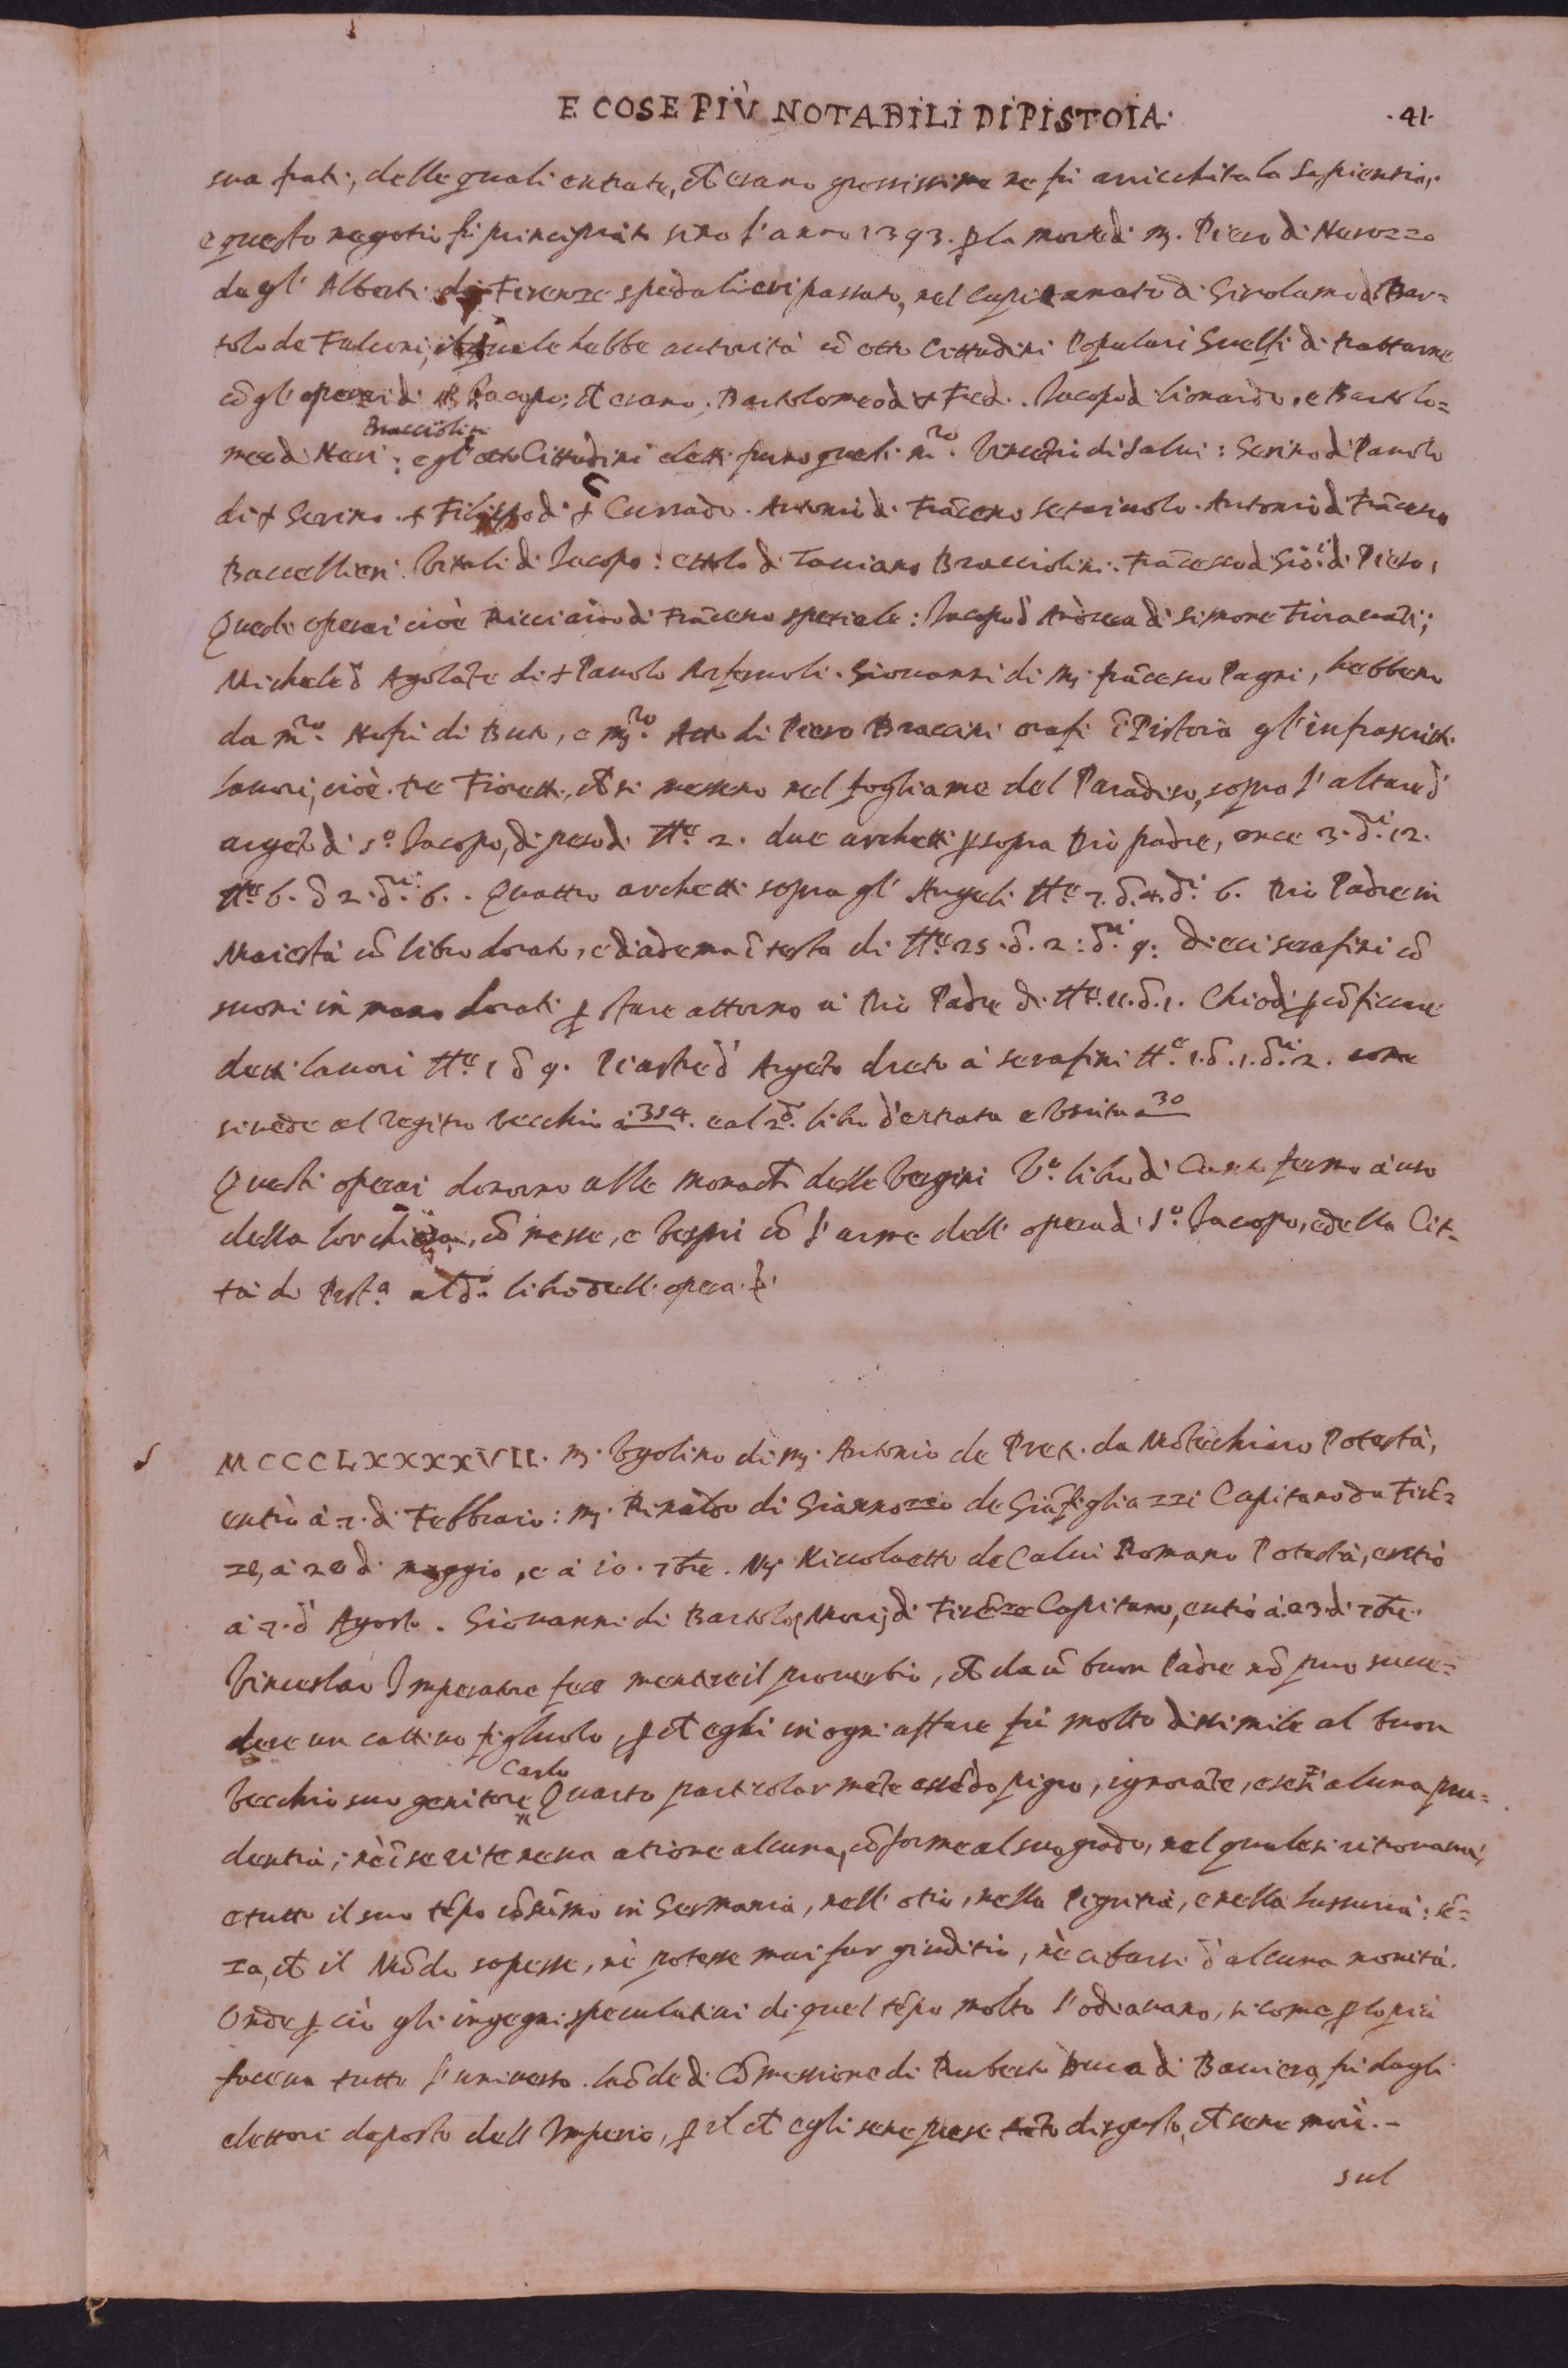 E COSE PIÙ NOTABILI DI PISTOIA.
.41.
sua frati, delle quali entrate, che erano grossissime ne fù arricchita la Sapientia,
e questo negotio fù principiato sino l'anno 1393. p la morte di m. Piero di Nerozzo
da gl' Alberti di Firenze spedalieri passato, nel Capitanato di Girolamo di Bar=
tolo de Falconi, il quale hebbe autorità cō otto Cittadini Populari Guelfi di trattarne
cō gl' operai di Sº Jacopo, che erano. Bartolomeo di + Fred. Jacopo di Lionardo, e Bartolo=
Bracciolini
meo di Neri: e gl' otto Cittadini eletti furno questi. mʳᵒ. di Salvi: Serino di Pauolo
di + Serino. + Filippo di + Currado. Antonio di Frācesco. Antonio di Frācesco
Baccellieri. Vitali di Jacopo: di Taviano Bracciolini. Frācesco di Giō: di Piero,
Questi operai cioè Ricciardo di Frācesco speziale: Jacopo d' Andrea di Simone;
Michele d' Agolāte di + Pauolo. Giouanni di m. frācesco Pagni, hebbero
da mʳᵒ. Nofri di Buto, e mʳᵒ. Atto di Piero Braccini orafi ī Pistoia gl' infrascritti
lauori, cioè. tre Fioretti, che si messero nel fogliame del Paradiso, sopra l' altare d'
argēto di Sº Jacopo, di peso di ttᵉ 2. due archetti p sopra Dio padre, once 3. dʳⁱ 12.
ttᵉ 6. d 2. dʳⁱ. 6. . Quattro archetti sopra gl' Angeli ttᵉ 7. d. 4. dʳⁱ. 6. Dio Padre in
Maiestà cō libro dorato, e diadema ī testa di ttᵉ 25. d. 2: dʳⁱ 9: dieci serafini cō
suoni in mano dorati p stare attorno a Dio Padre di ttᵉ. 11. d. 1. Chiodi p cōficcare
detti lauori ttᵉ 1 d 9. Piastre d' Argēto drēto à serafini ttᵉ. 1. d. 1. dʳⁱ. 2. come
si uede al registro vecchio à 354. e al 2º. libro d' entrata e Vscita a 30
Questi operai donorno alle monache delle Vergini Vº. libro di Canto fermo a uso
della lor chiesa, cō messe, e vespri cō l' arme dell' opera di Sº. Jacopo, e della Cit=
tà di Pistª. al dº. libro dell' opera.
MCCCLXXXXVII. m. Vgolino di m. Antonio de Pret. da Mōtechiaro Potestà,
entrò à 7. di Febbraio: m. Rinaldo di Giannozzo de Giāfigliazzi Capitano da Firē=
ze, à 20 di maggio, e à 10. 7bre. m. Niccoluetto de Calui Romano Potestà, entrò
à 7. d' Agosto. Giouanni di Bartolo, Mori, di Firēze Capitano, entrò à 23. di 7bre.
Vinceslao Imperatore fece mentire il prouerbio, che da ū buon Padre nō puo succe=
dere un cattiuo figliuolo, p che egli in ogni affare fù molto dissimile al buon
Carlo
Vecchio suo genitore Quarto particolarmēte essēdo pigro, ignorāte, e sēza alcuna pru=
dentia; nè ī se ritenena atione alcuna, cōforme al suo grado, nel quale si ritrouaua,
e tutto il suo tēpo cōsumò in Germania, nell' otio, nella Pigritia, e nella lussuria: sē=
za, che il Mōdo sapesse, nè potesse mai far giuditio, nè cibarsi d' alcuna nouità.
Onde p ciò gli ingegni speculatiui di quel tēpo molto l' odiauano, si come p lo più
faceua tutto l' uniuerso. laōde di Cōmessione di Ruberto Duca di Bauiera, fù dagli
elettori deposto dell Imperio, p il che egli se ne prese tāto disgusto, che se ne morì. -
sul